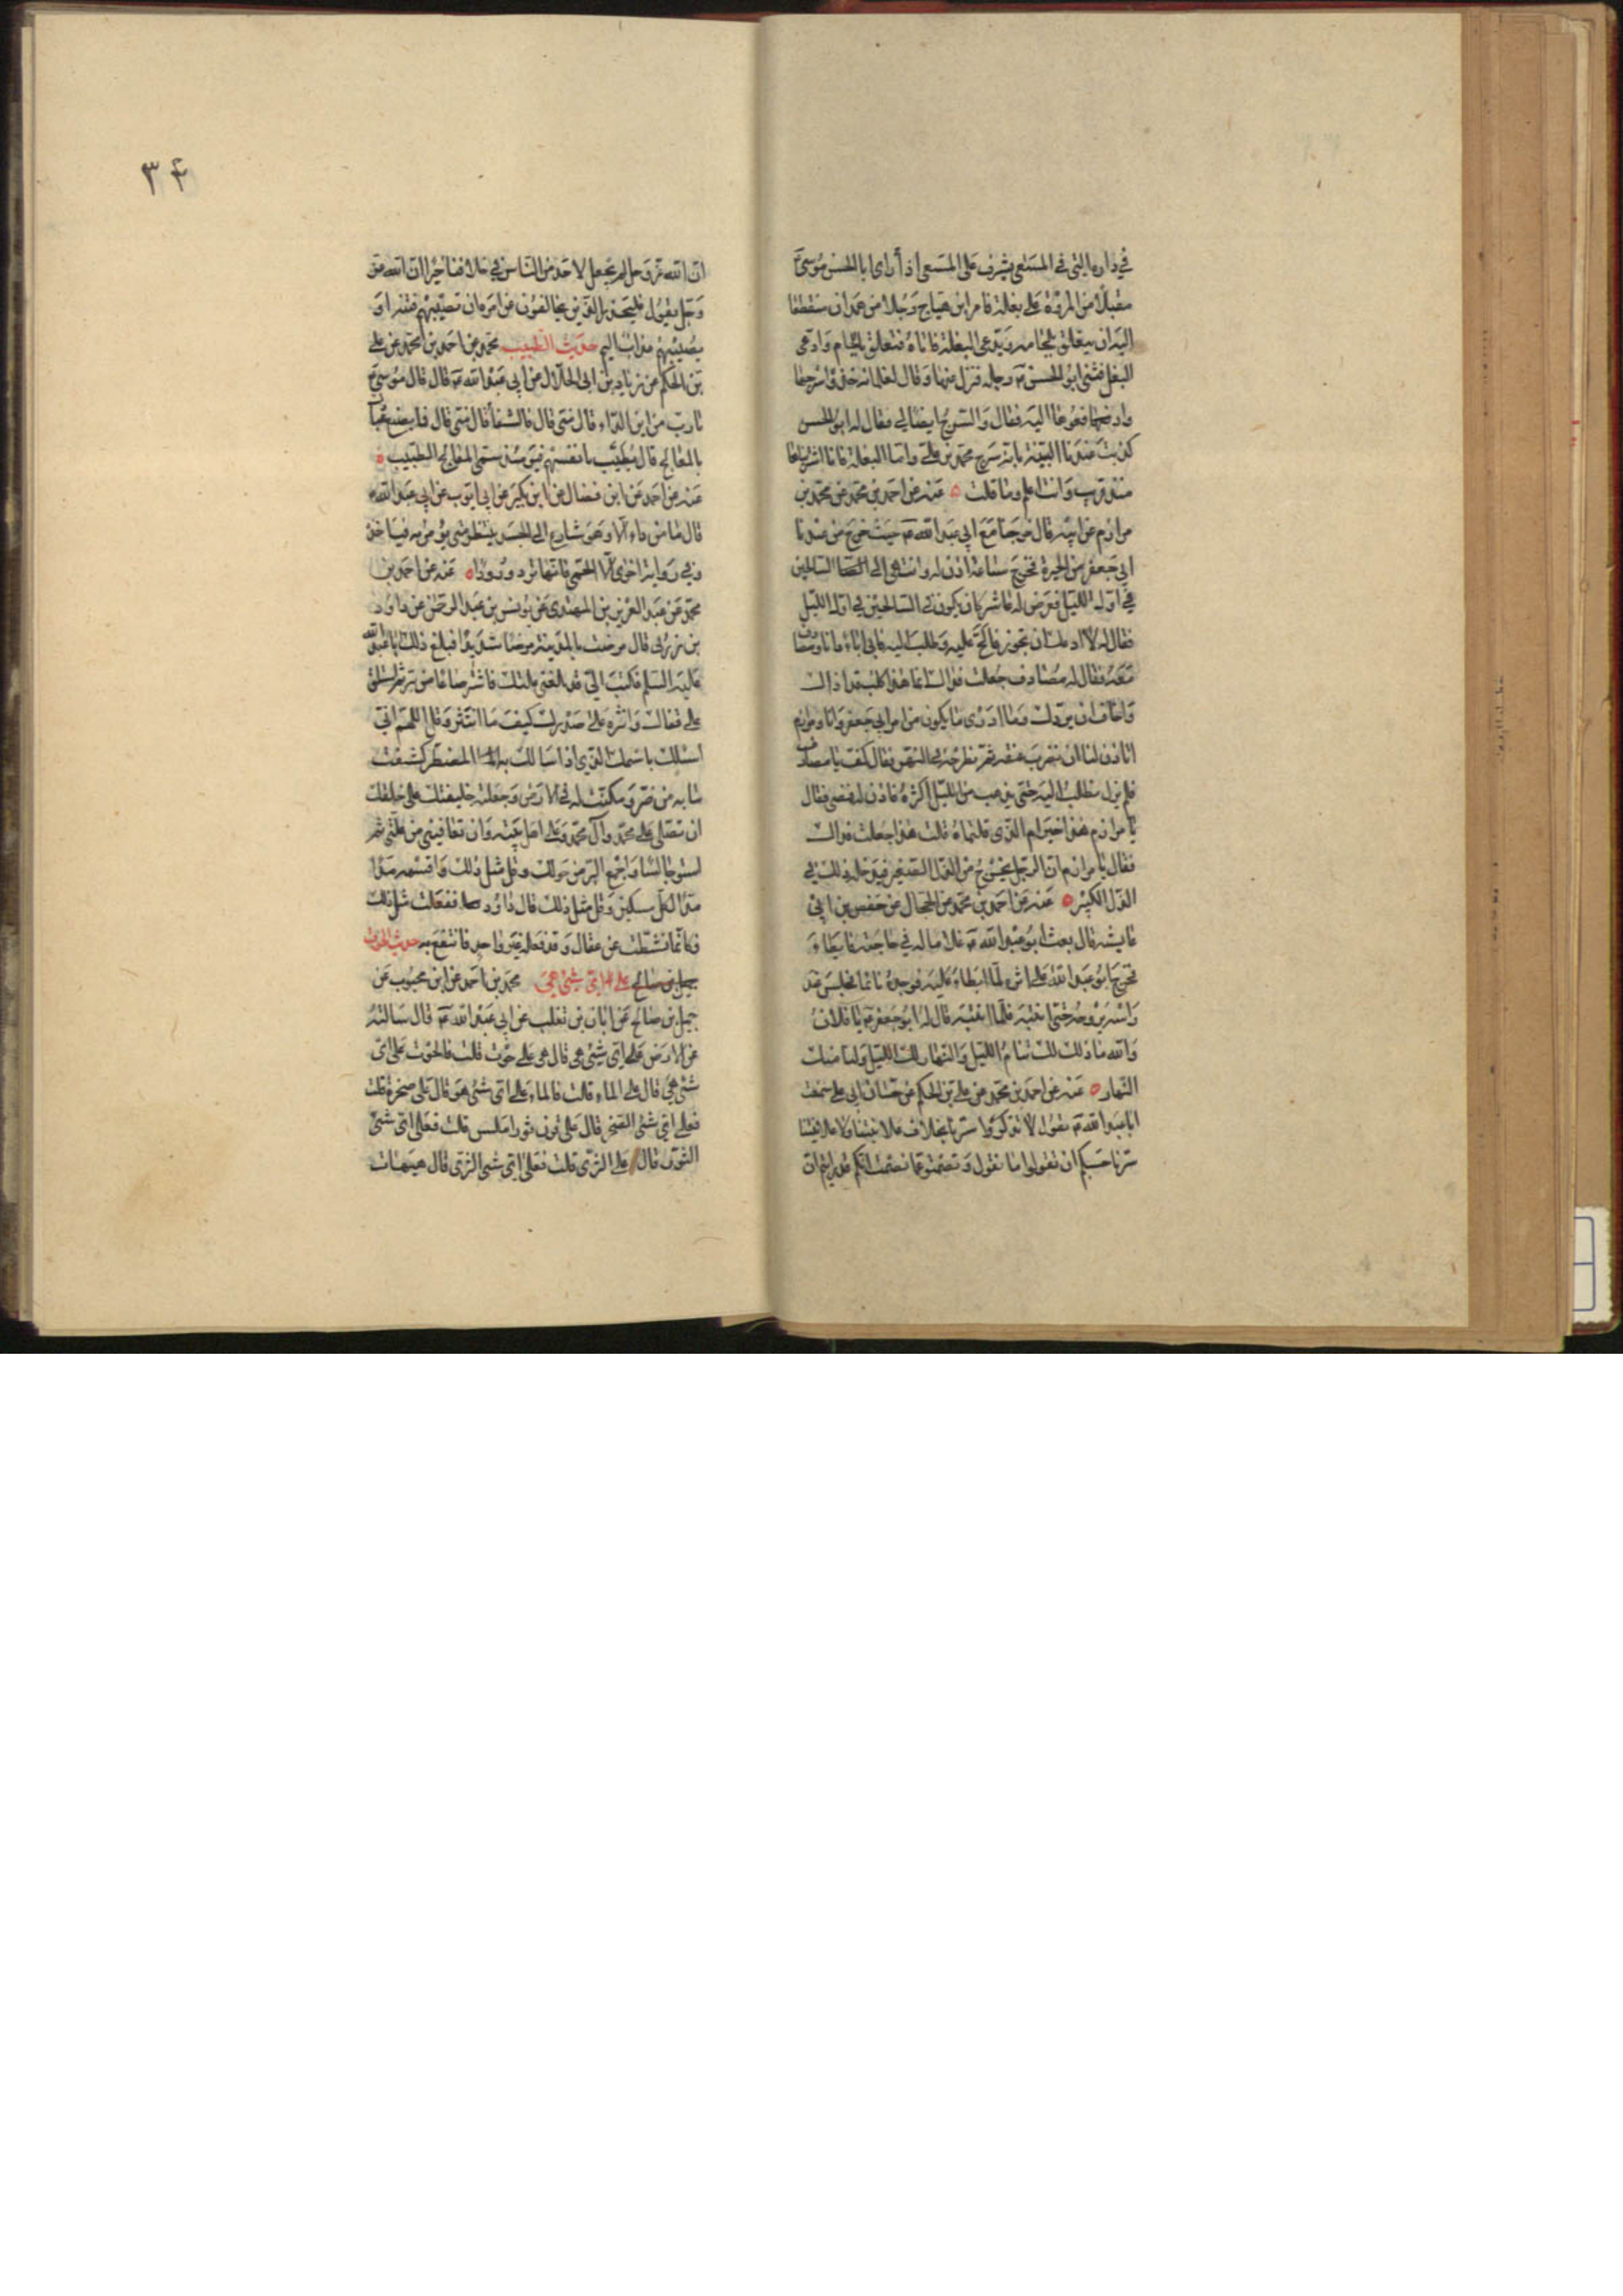 في داره التي في المسعى يشرف على المسعى اذ رأى ابا الحسن موسى ع
مقبلا من المروة على بغلة فامر ابن هياج رجلا من همدان منقطعا
اليه ان يتعلق بلجامه ويدعي البغلة فاتاه فتعلق باللجام وادعى
البغلة فثنى ابو الحسن ع رجله فنزل عنها وقال لغلمانه خذوا سرجها
وادفعوها اليه فقال والسرج ايضا لي فقال له ابو الحسن
كذبت عندنا البينة بانه سرج محمد بن علي واما البغلة فانا اشتريناها
منذ قريب وانت اعلم وما قلت ه عنه عن احمد بن محمد عن محمد بن
مرازم عن ابيه قال خرجنا مع ابي عبد الله ع حيث خرج من عند
ابي جعفر من الحيرة فخرج ساعة اذن له وانتهى الى السالحين
في اول الليل فعرض له عاشر كان يكون في السالحين في اول الليل
فقال له لا ادعك ان تجوز فالح عليه وطلب اليه فابى اباء وانا ومصادف
معه فقال له مصادف جعلت فداك انما هذا كلب قد اذاك
واخاف ان يردك وما ادري ما يكون من امر ابي جعفر وانا ومرازم
اتاذن لنا ان نضرب عنقه ثم نطرحه في النهر فقال كف يا مصادف
فلم يزل يطلب اليه حتى ذهب من الليل اكثره فاذن له فمضى فقال
يا مرازم هذا خير ام الذي قلتماه قلت هذا جعلت فداك
فقال يا مرازم ان الرجل يخرج من الذل الصغير فيدخله ذلك في
الذل الكبير ه عنه عن احمد بن محمد عن الحجال عن حفص بن ابي
عايشة قال بعث ابو عبد الله ع غلاما له في حاجة فابطاء
فخرج ابو عبد الله على اثره لما ابطاء عليه فوجده نائما فجلس عند
راسه يروحه حتى انتبه فلما انتبه قال له ابو جعفر ع يا فلان
والله ما ذلك لك تنام الليل والنهار لك الليل ولنا منك
النهار ه عنه عن احمد بن محمد عن علي بن الحكم عن حسان ابي علي سمعت
ابا عبد الله ع يقول لا تذكروا سرنا بخلاف علانيتنا ولا علانيتنا
سرنا حسبكم ان تقولوا ما نقول وتصمتوا عما نصمت انكم قد رايتم ان
٣٤
ان الله عز وجل لم يجعل لاحد من الناس في خلافنا خيرا ان الله عز
وجل يقول فليحذر الذين يخالفون عن امره ان تصيبهم فتنة او
يصيبهم عذاب اليم حديث الطبيب محمد عن احمد بن محمد عن علي
بن الحكم عن زياد بن ابي الحلال عن ابي عبد الله ع قال قال موسى ع
يا رب من اين الداء قال مني قال فالشفاء قال مني قال فما يصنع عبادك
بالمعالج قال يطيب بانفسهم فيومئذ سمي المعالج الطبيب ه
عنه عن احمد عن ابن فضال عن ابن بكير عن ابي ايوب عن ابي عبد الله ع
قال ما من داء الا وهو شارع الى الجسد ينتظر متى يؤمر به فياخذه
وفي رواية اخرى الا الحمى فانها ترد ورودا ه عنه عن احمد بن
محمد عن عبد العزيز بن المهتدي عن يونس بن عبد الرحمن عن داود
بن زربي قال مرضت بالمدينة مرضا شديدا فبلغ ذلك ابا عبد الله
عليه السلم فكتب الي قد بلغني علتك فاشتر صاعا من بر ثم استلق
على قفاك وانثره على صدرك كيف ما انتثر وقل اللهم اني
اسئلك باسمك الذي اذا سالك به المضطر كشفت
ما به من ضر ومكنت له في الارض وجعلته خليفتك على خلقك
ان تصلي على محمد وآل محمد وعلى اهل بيته وان تعافيني من علتي ثم
استو جالسا واجمع البر من حولك وقل مثل ذلك واقسمه مدا
مدا لكل مسكين وقل مثل ذلك قال داود ففعلت مثل ذلك
فكانما نشطت من عقال وقد فعله غير واحد فانتفع به حديث الحوت
على اي شئ هي محمد عن احمد عن ابن محبوب عن
جميل بن صالح عن ابان بن تغلب عن ابي عبد الله ع قال سالته
عن الارض على اي شئ هي قال هي على حوت قلت فالحوت على اي
شئ هي قال على الماء قلت فالماء على اي شئ هو قال على صخرة قلت
فعلى اي شئ الصخرة قال على قرن ثور املس قلت فعلى اي شئ
الثور قال على الثرى قلت فعلى اي شئ الثرى قال هيهات